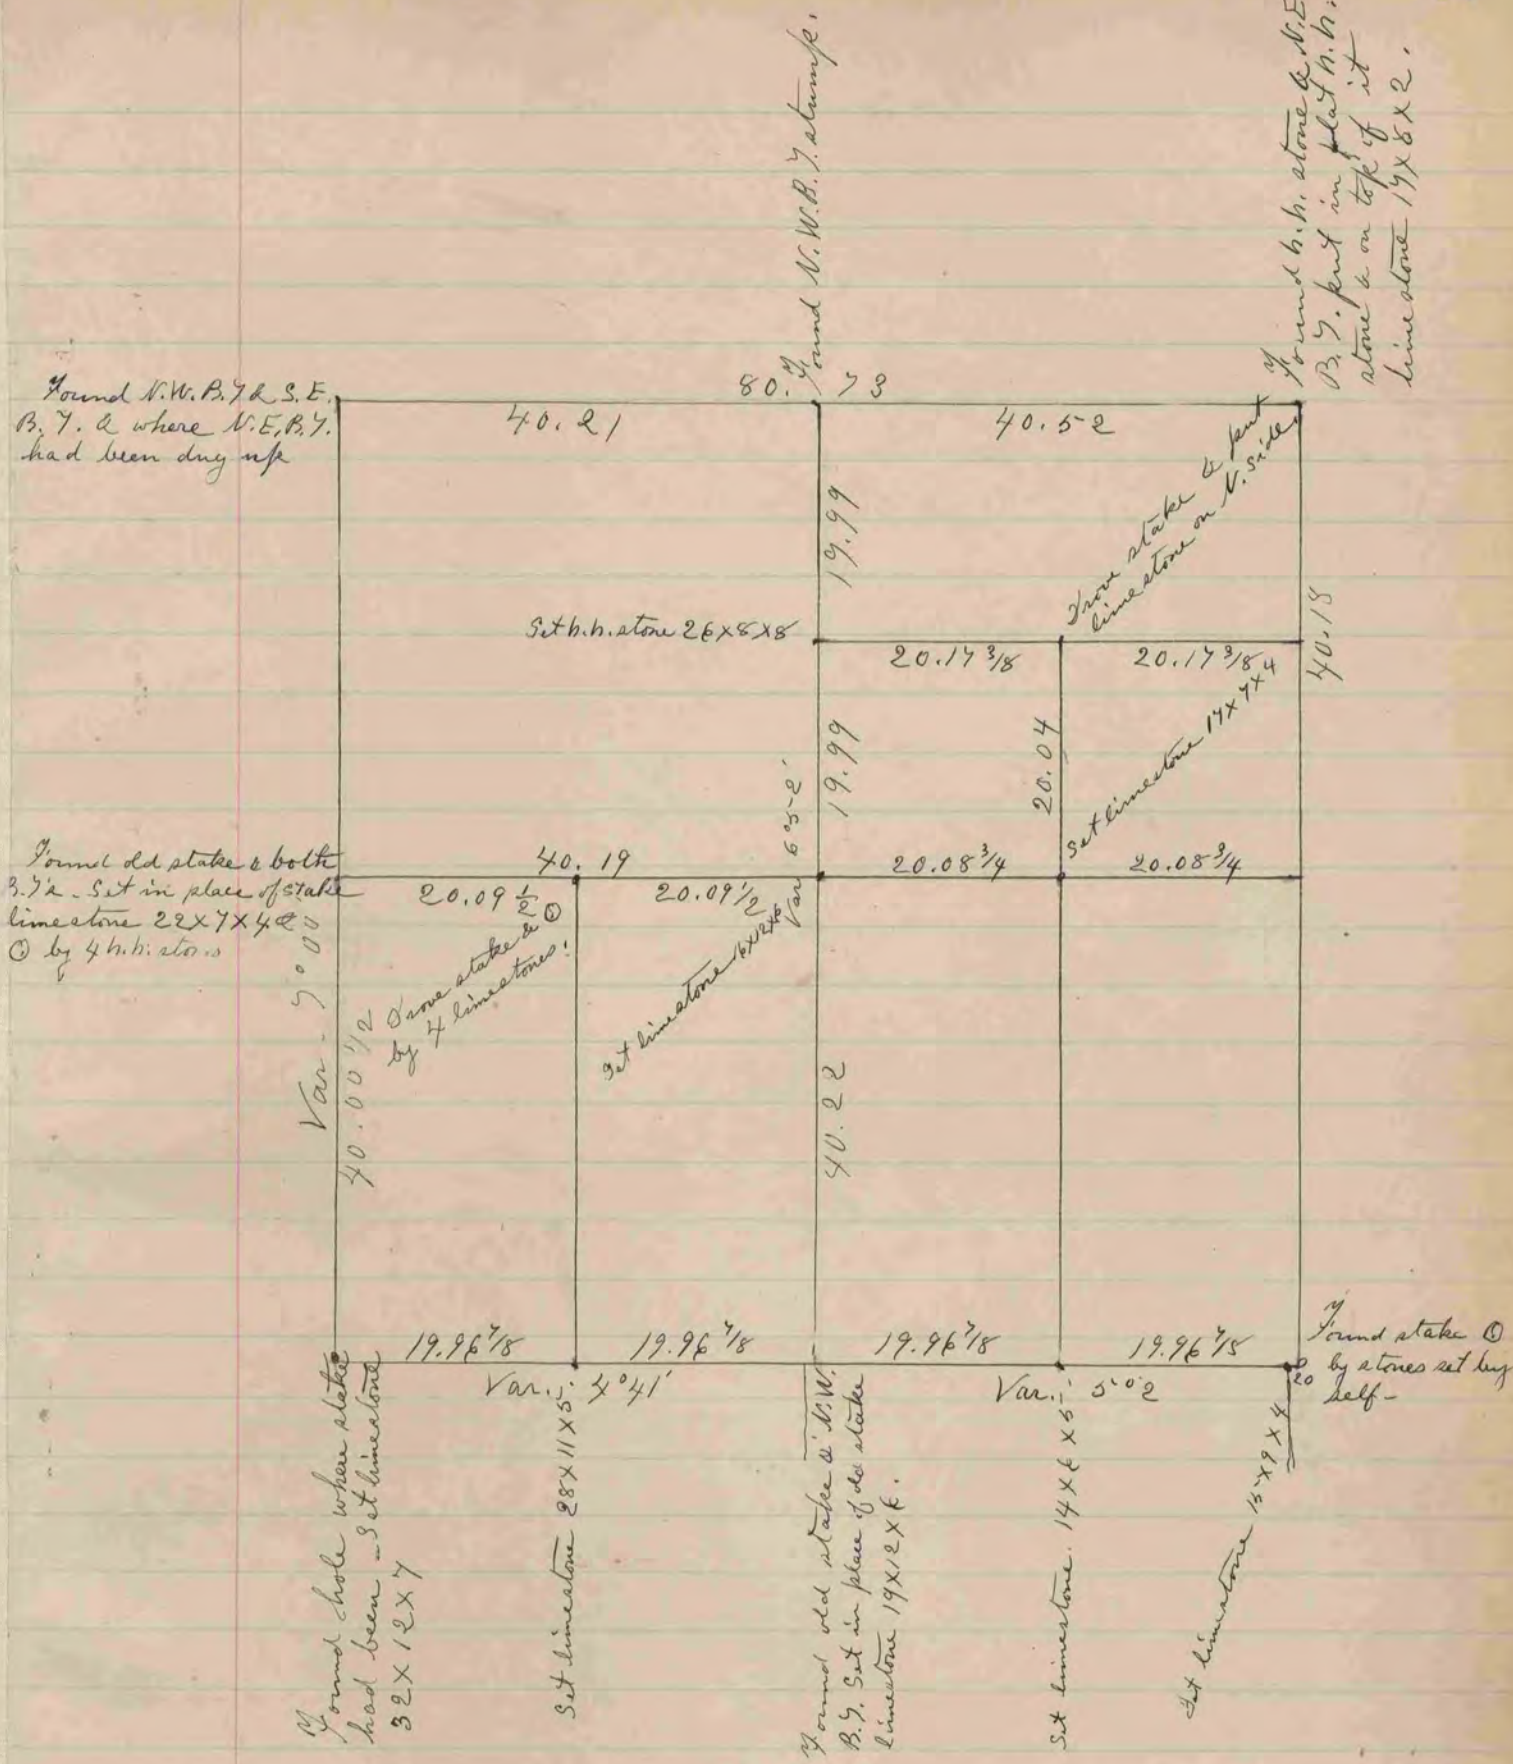 Found N.W.B.T. stump.
Found h.h. stone & N.E.
B.T. put in flat h.h.
stone & on top of it
limestone 17x8x2.
Found N.W.B.T & S.E.
B.T. & where N.E.B.T.
had been dug up
80.73
40.21
40.52
19.99
Drove stake & put
limestone on N. side
40.18
Set h.h. stone 26x8x8
20.17 3/8
20.17 3/8
19.99
20.04
Set limestone 17x7x4
Var 6°52'
Found old stake & both
B.T's. Set in place of stake
limestone 22x7x4 &
⊙ by 4 h.h. stones
40.19
20.09 1/2
20.09 1/2
20.08 3/4
20.08 3/4
Var. 7°00
40.00 1/2
Drove stake & ⊙
by 4 limestones.
Set limestone 16x12x6
40.22
19.96 7/8
19.96 7/8
19.96 7/8
19.96 7/8
Var. 4°41'
Var. 5°2
20
Found stake ⊙
by stones set by
self-
Found hole where stake
had been - Set limestone
32x12x7
Set limestone 28x11x5
Found old stake & N.W.
B.T. Set in place of do stake
limestone 19x12x6.
Set limestone. 14x6x5
Set limestone 15x9x4